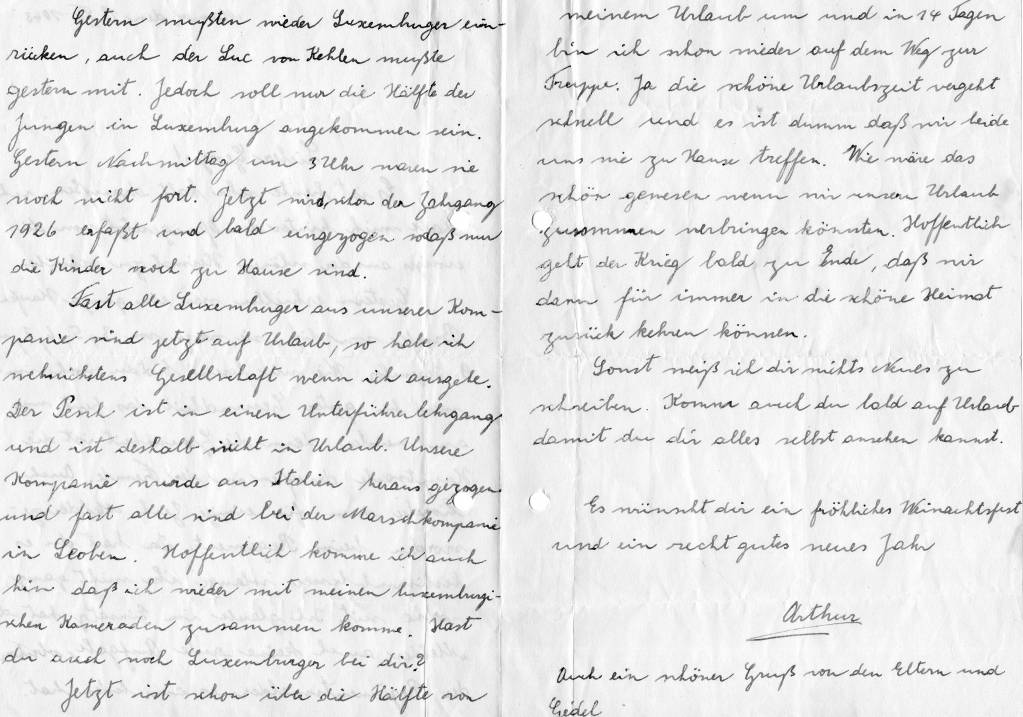 Gestern mußten wieder Luxemburger ein-
rücken, auch der Luc von Kehlen mußte
gestern mit. Jedoch soll nur die Hälfte der
Jungen in Luxemburg angekommen sein.
Gestern Nachmittag um 3 Uhr waren sie
noch nicht fort. Jetzt wird schon der Jahrgang
1926 erfaßt und bald eingezogen sodaß nur
die Kinder noch zu Hause sind.
Fast alle Luxemburger aus unserer Kom-
panie sind jetzt auf Urlaub, so habe ich
wehnichstens Gesellschaft wenn ich ausgehe.
Der Pesch ist in einem Unterführerlehrgang
und ist deshalb nicht in Urlaub. Unsere
Kompanie wurde aus Italien heraus gezogen
und fast alle sind bei der Marschkompanie
in Leoben. Hoffentlich komme ich auch
hin daß ich wieder mit meinen luxemburgi-
schen Kameraden zusammen komme. Hast
du auch noch Luxemburger bei dir?
Jetzt ist schon über die Hälfte von
meinem Urlaub um und in 14 Tagen
bin ich schon wieder auf dem Weg zur
Truppe. Ja die schöne Urlaubszeit vergeht
schnell und es ist dumm daß wir beide
uns nie zu Hause treffen. Wie wäre das
schön gewesen wenn wir unsern Urlaub
zusammen verbringen könnten. Hoffentlich
geht der Krieg bald zu Ende, daß wir
dann für immer in die schöne Heimat
zurück kehren können.
Sonst weiß ich dir nichts Neues zu
schreiben. Komm auch du bald auf Urlaub
damit du dir alles selbst ansehen kannst.
Es wünscht dir ein fröhliches Weinachtsfest
und ein recht gutes neues Jahr
Arthur
Auch ein schöner Gruß von den Eltern und